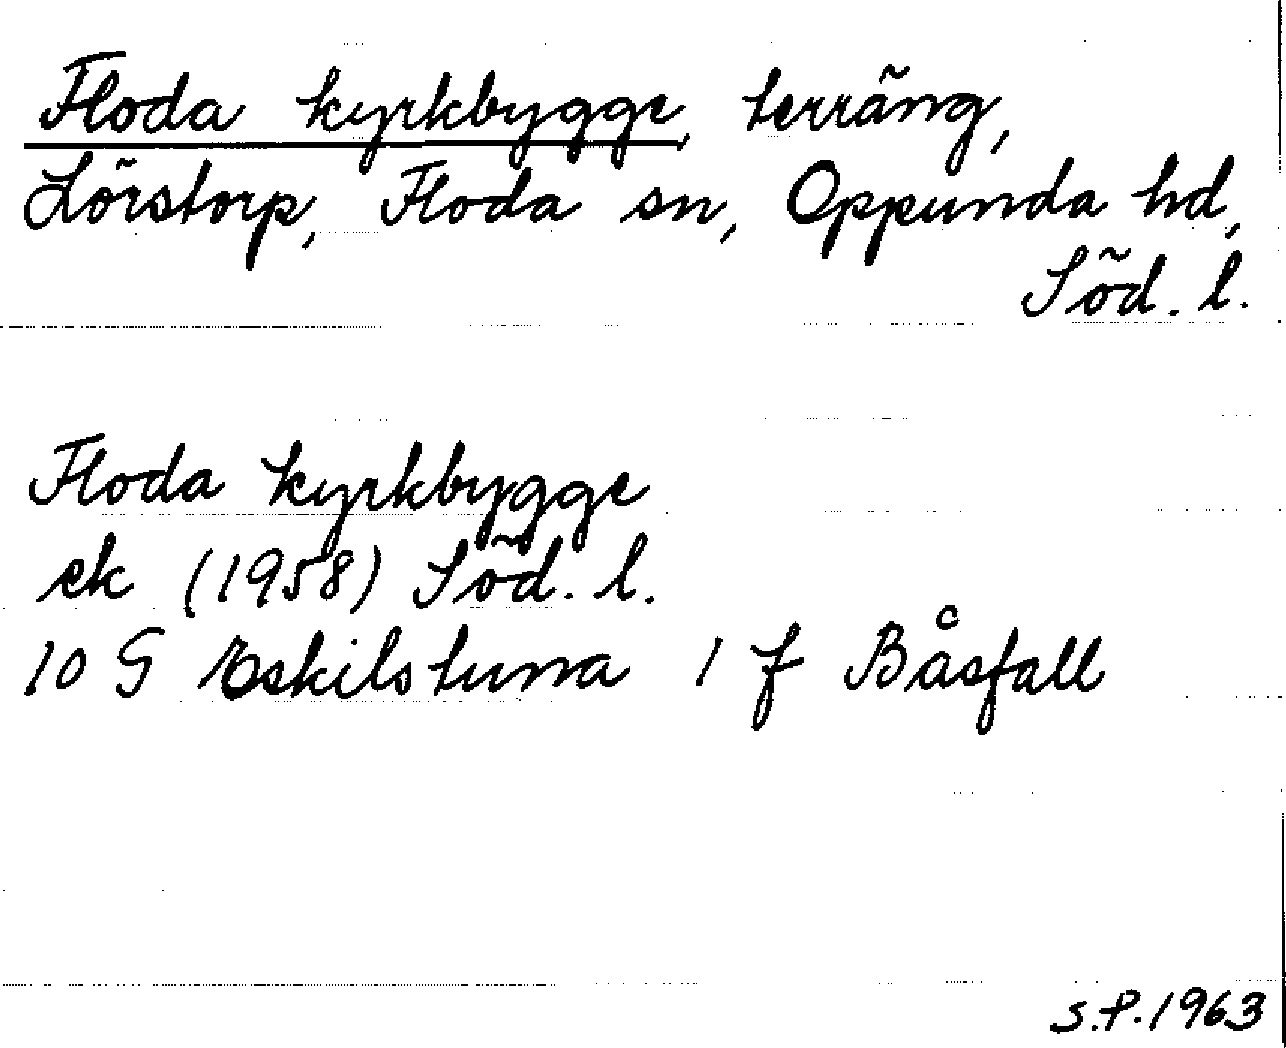 Floda kyrkbygge, terräng,
Lörstorp, Floda sn, Oppunda hd,
Söd. l.
Floda kyrkbygge
ek (1958) Söd. l.
10 G Eskilstuna 1 f Båsfall
S.P. 1963